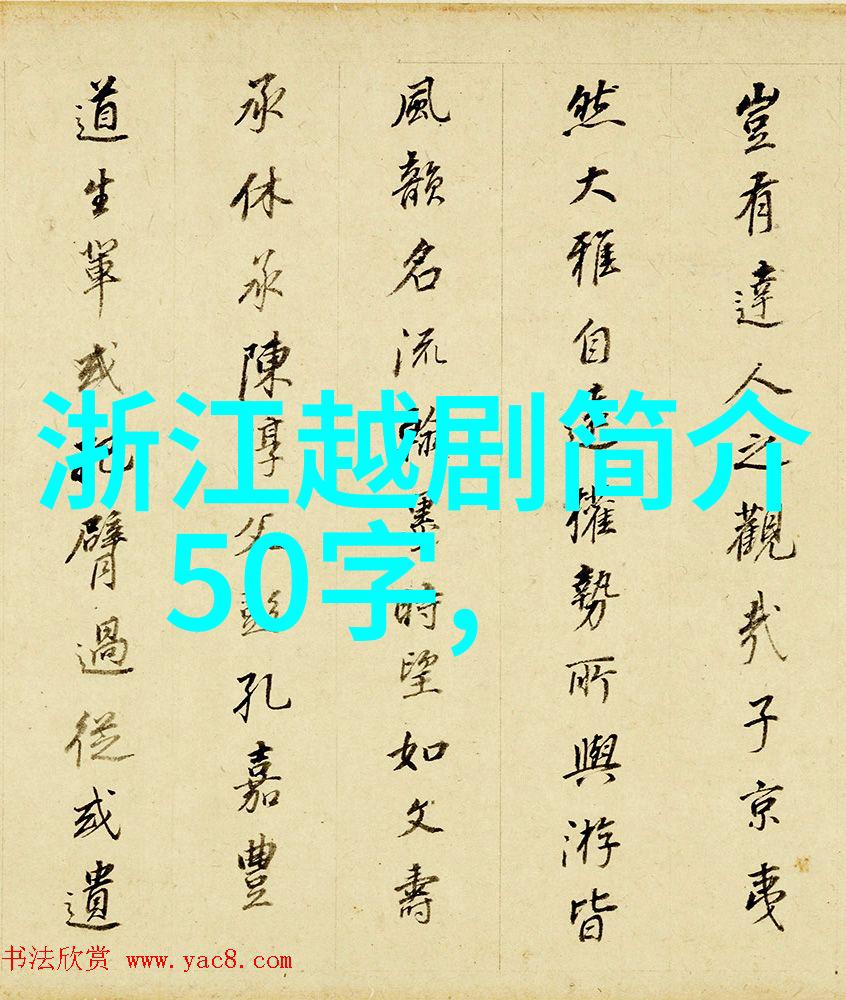 豈有達人之觀哉子京夷
然大雅自遠權勢所與游皆
風韻名流翰墨時望如文壽
承休承陳淳父彭孔嘉豊
道生輩或把臂過從或遺
浙江越剧简介
50字,
书法欣赏 www.yac8.com